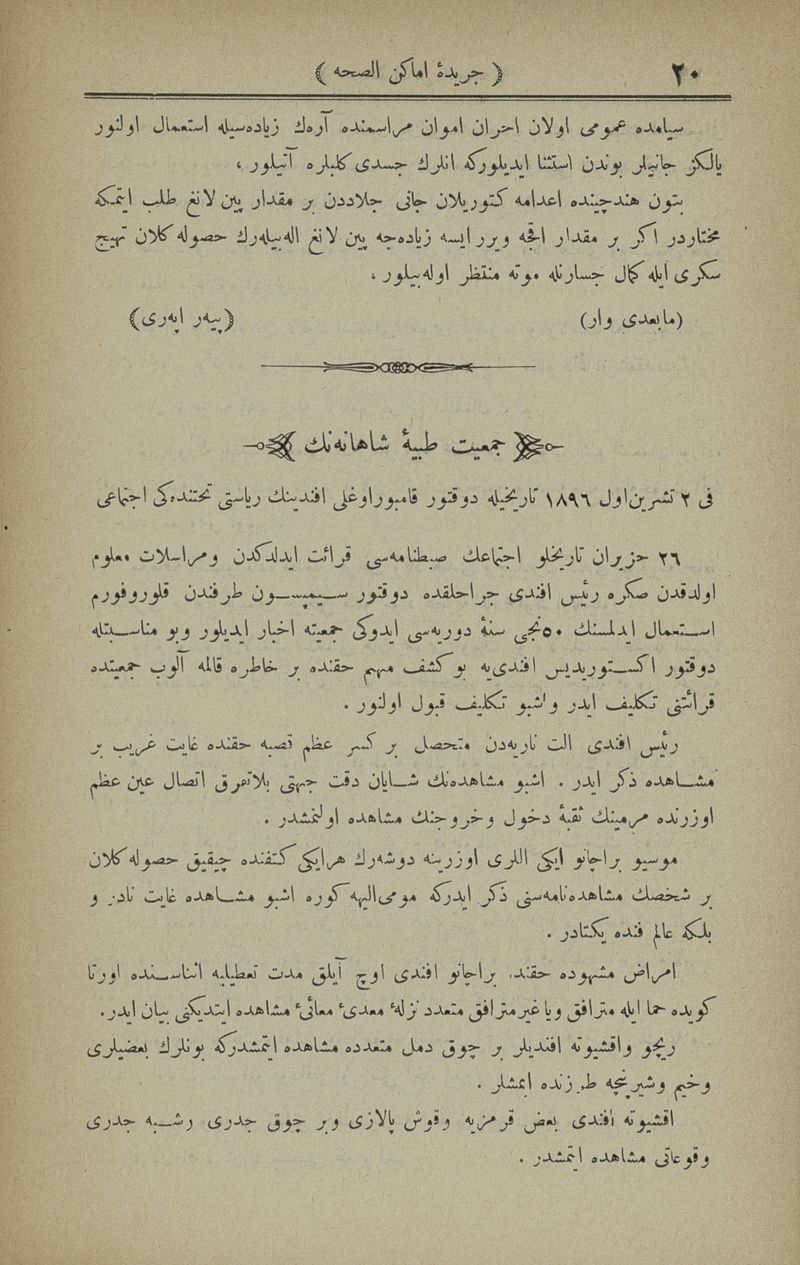 ٢٠ ( جريدهٔ اماكن الصحه )
سيامده عمومى اولان احران اموان مراسمنده آره‌ك زياده‌سيله استعمال اولنور
يالكز جانيلر بوندن استثنا ايديلوركه انلرك جسدى كلبلره آتيلور ،
بتون هندچينده اعدامه كتوريلان جانى جلاددن بر مقدار پين لانغ طلب ايتمكه
مختاردر اكر بر مقدار اقچه ويرر ايسه زياده‌جه پين لانغ اله‌بيله‌رك حصوله كلان تهيج
سكرى ايله كمال جسارتله موته منتظر اوله‌بيلور ،
(مابعدى وار) (پيه‌ر اپه‌رى)
جمعيت طبيهٔ شاهانه‌نك
فى ٢ تشرين‌اول ١٨٩٦ تاريخيله دوقتور قامبوراوغلى افندينك رياستى تحتنده‌كى اجتماعى
٢٦ حزيران تاريخلو اجتماعك ضبطنامه‌سى قرائت ايدلدكدن ومراسلات معلوم
اولدقدن صكره رئيس افندى جراحلقده دوقتور سيمپسون طرفندن قلوروفورم
استعمال ايدلمسنك ٥٠نجى سنهٔ دوريه‌سى ايدوكى جمعيته اخبار ايديلور وبو مناسبتله
دوقتور اكستوريديس افندى‌يه بو كشف مهم حقنده بر خاطره قلمه آلوب جمعيتده
قرائتنى تكليف ايدر واشبو تكليف قبول اولنور .
رئيس افندى الت ناريه‌دن متحصل بر كسر عظم قصبه حقنده غايت غريب بر
مشاهده ذكر ايدر . اشبو مشاهده‌نك شايان دقت جهتى بلاتفرق اتصال عين عظم
اوزرنده مرمينك ثقبهٔ دخول وخروجنك مشاهده اولنمشدر .
موسيو براچانو ايكى اللرى اوزرينه دوشه‌رك هرايكى كتفنده چيقيق حصوله كلان
بر شخصك مشاهده‌نامه‌سنى ذكر ايدركه مومى‌اليهه كوره اشبو مشاهده غايت نادر و
بلكه عالم فنده يكتادر .
امراض مشهوده حقنده براچانو افندى اوچ آيلق مدت تعطيليه اثناسنده اورتا
كويده حما ايله مترافق ويا غيرمترافق متعدد نزلهٔ معدىٔ معائىٔ مشاهده ايتديكنى بيان ايدر.
ريچو واقشيوته افنديلر بر چوق دمل متعدده مشاهده ايتمشدركه بونلرك بعضيلرى
وخيم وشيرپنچه طرزنده ايمشلر .
اقشيوته افندى بعض قرمزيه وقوش پالازى وبر چوق جدرى وشبه جدرى
وقوعاتى مشاهده ايتمشدر .